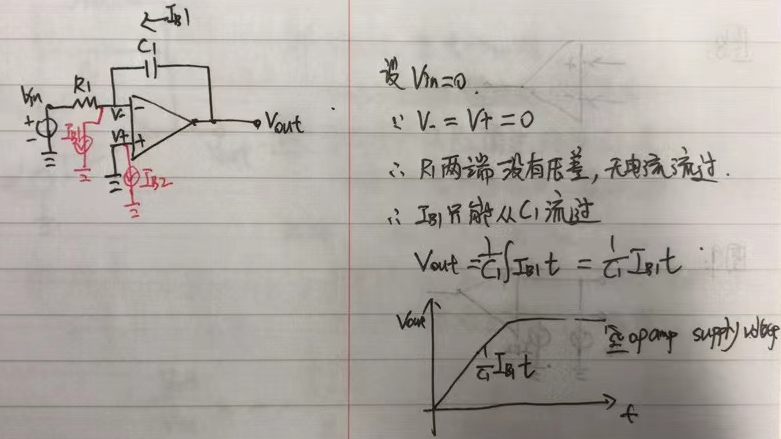 ← IB1
C1
R1
Vin
V-
-
Vout
+
-
IB1
V+
+
IB2
设 Vin=0.
∵ V- = V+ = 0
∴ R1两端没有压差,无电流流过.
∴ IB1只能从C1流过
Vout = 1/C1 ∫IB1 t = 1/C1 IB1 t
Vout
opamp supply voltage
1/C1 IB1 t
t